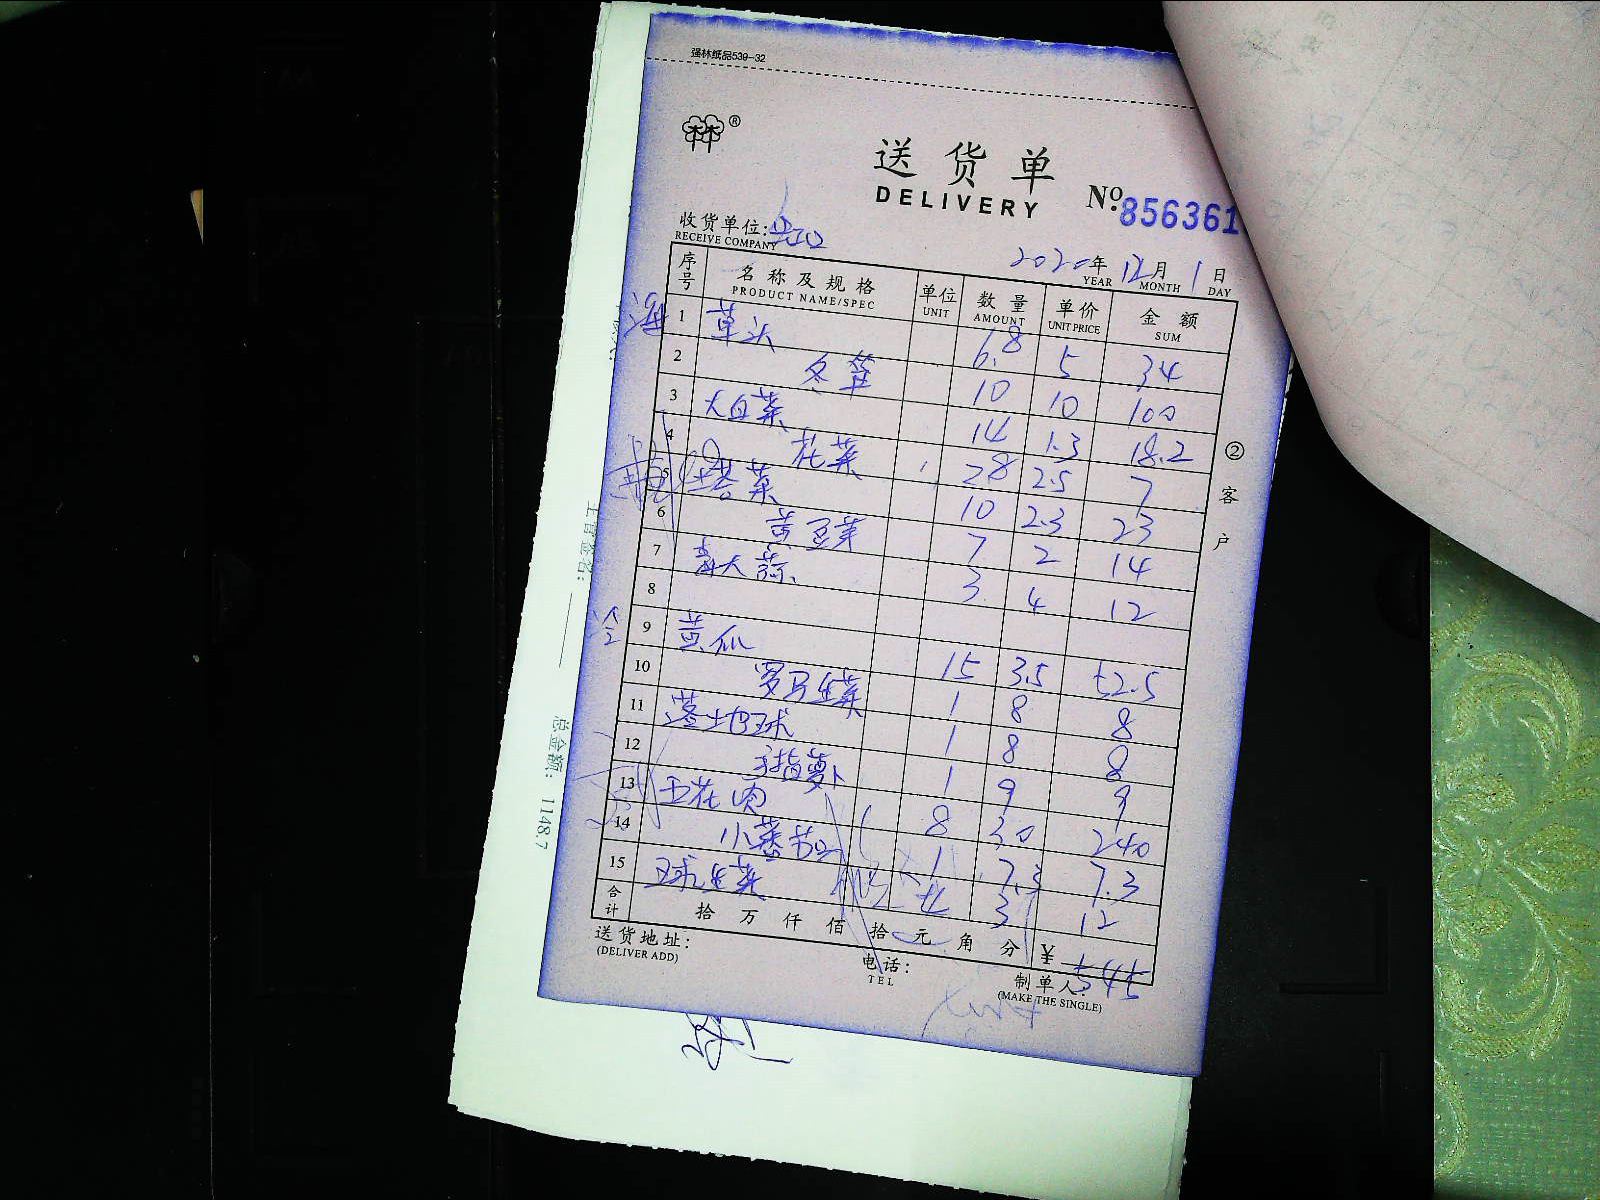 强林纸品539-32
®
送货单
DELIVERY
No. 856361
收货单位:
RECEIVE COMPANY
2020年 12月 1日
YEAR MONTH DAY
序号 名称及规格 单位 数量 单价 金额
PRODUCT NAME/SPEC UNIT AMOUNT UNIT PRICE SUM
1 草头 6.8 5 34
2 冬笋 10 10 100
3 大白菜 14 1.3 18.2
4 花菜 2.8 2.5 7
5 塔菜 10 2.3 23
6 黄豆芽 7 2 14
7 青大蒜 3 4 12
8
冷 9 黄瓜 15 3.5 52.5
10 罗马生菜 1 8 8
11 落地球 1 8 8
12 手指萝卜 1 9 9
13 五花肉 8 30 240
14 小葱 1 7.3 7.3
15 球生菜 4 3 12
合计 拾 万 仟 佰 拾 元 角 分 ¥ 545
送货地址:
(DELIVER ADD)
电话:
TEL
制单人:
(MAKE THE SINGLE)
②客户
主管签名:
总金额: 1148.7